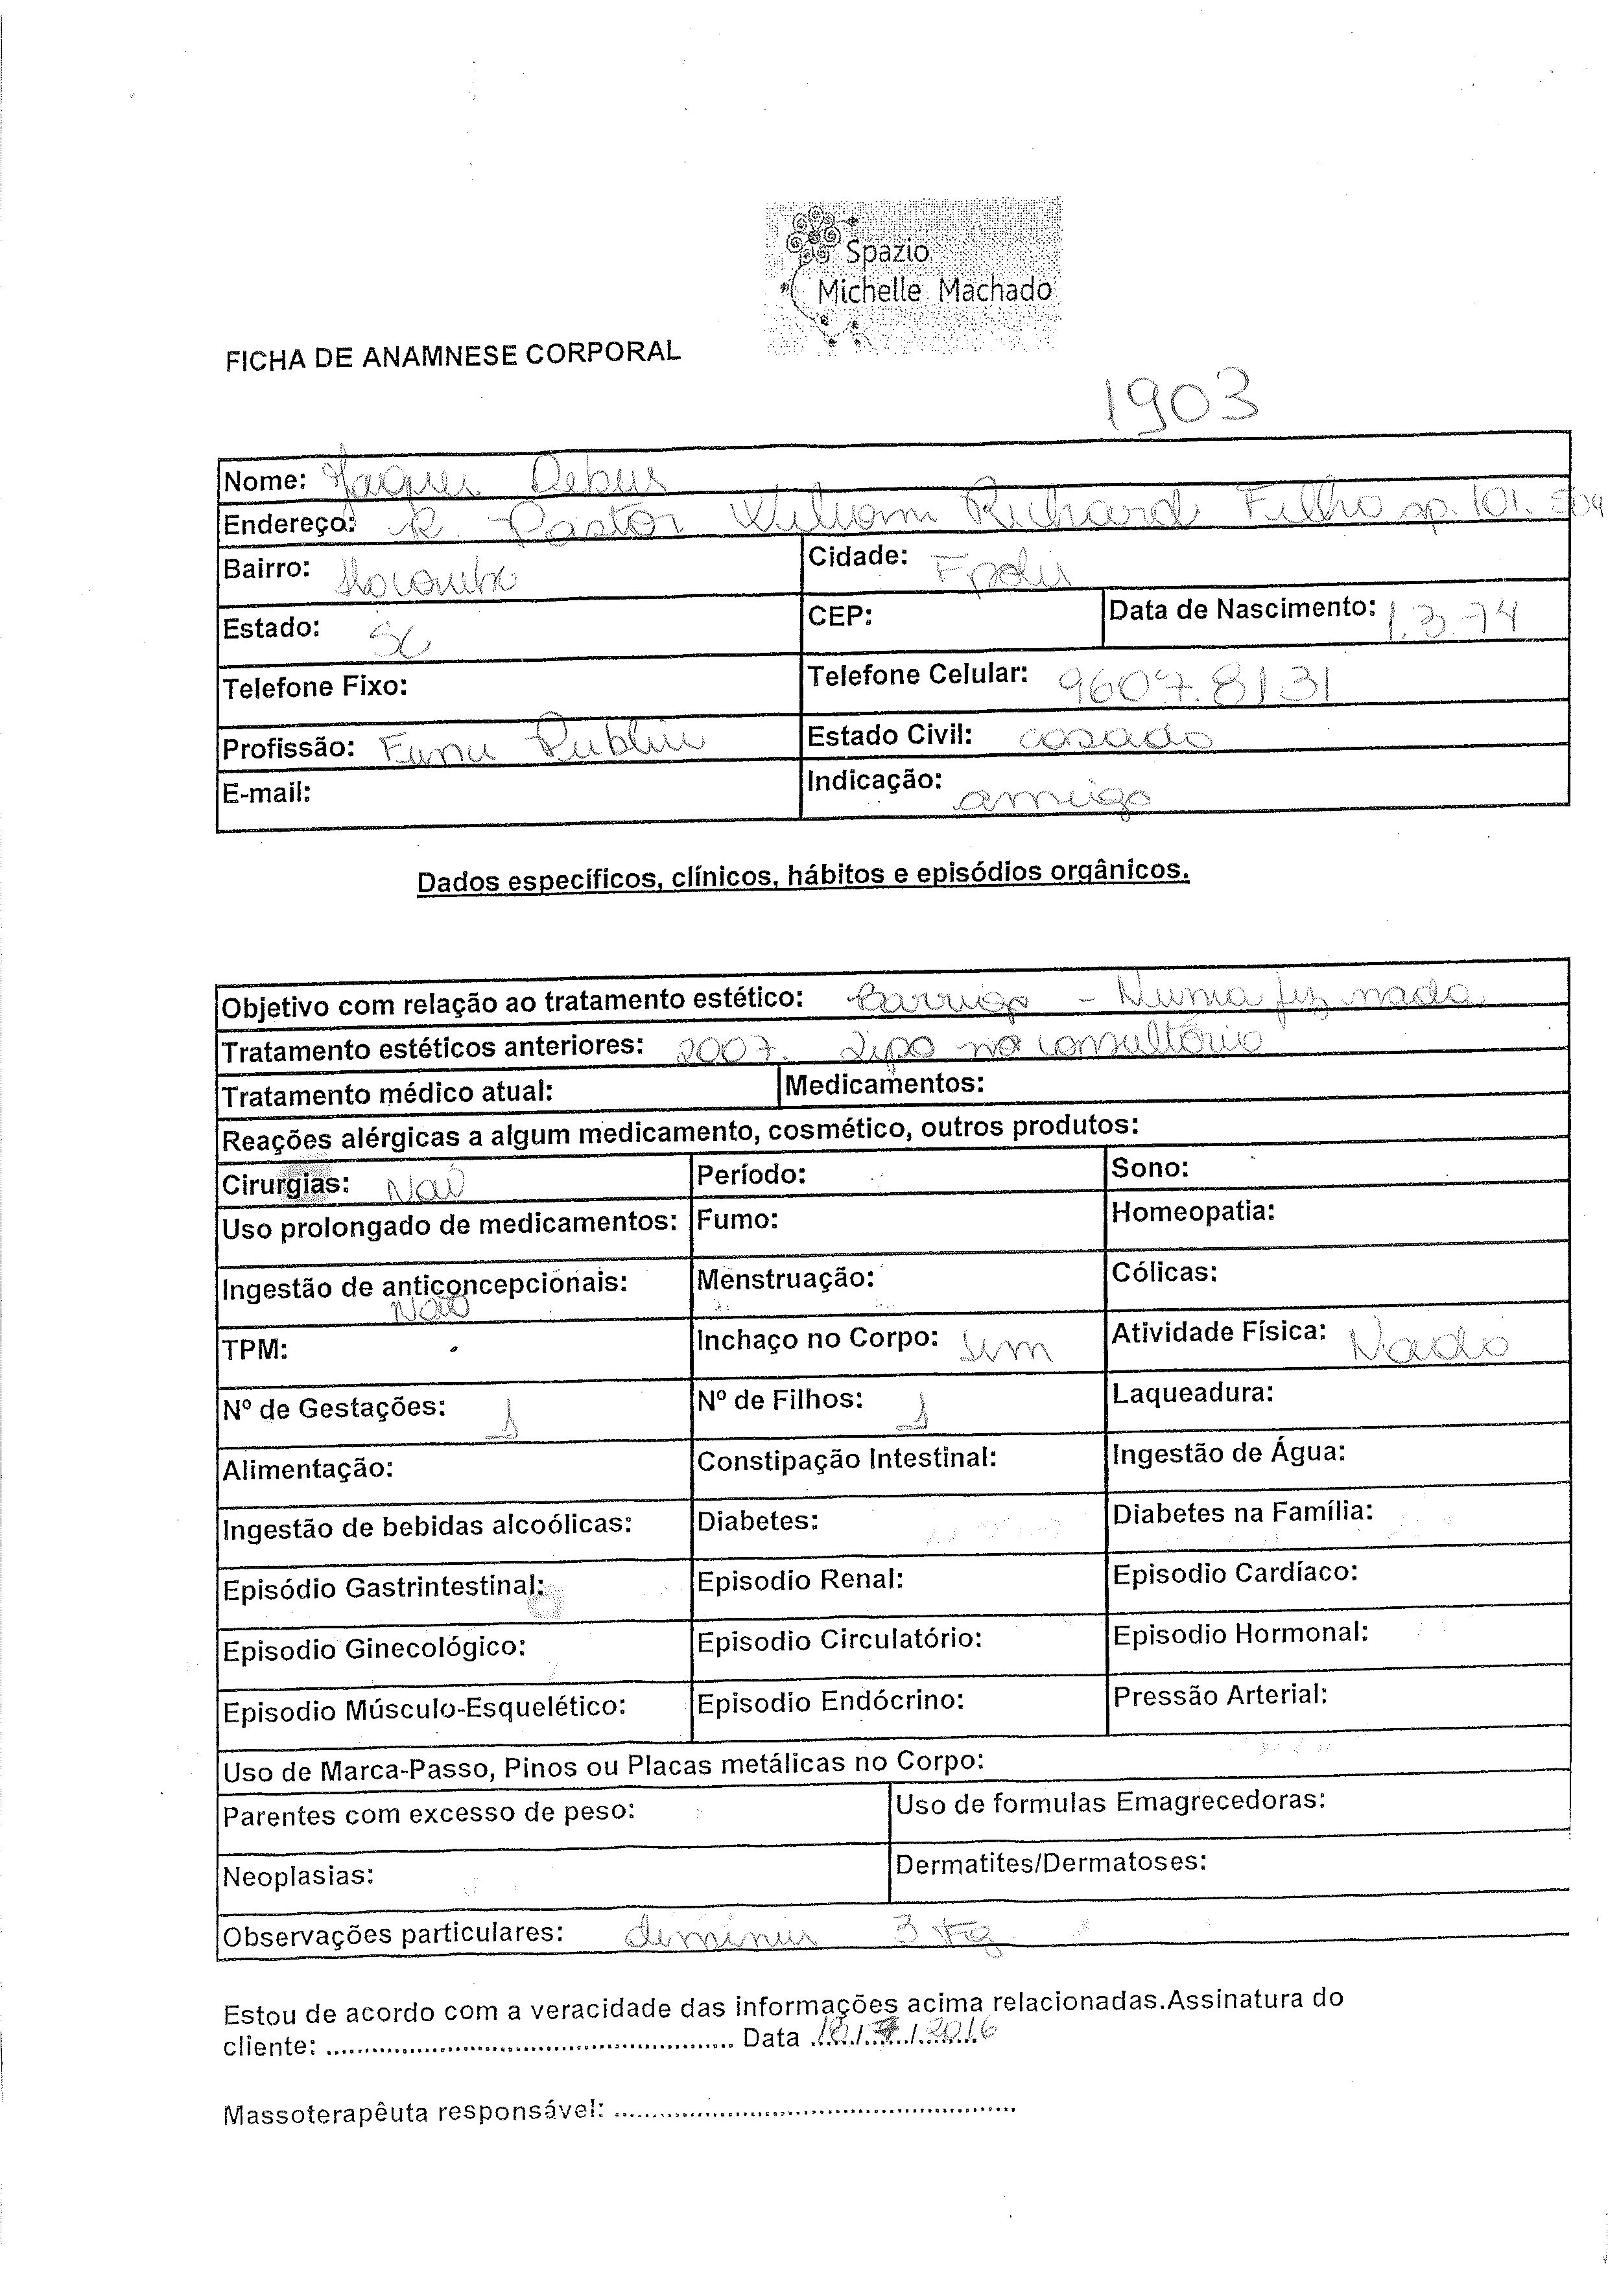 Spazio
Michelle Machado
FICHA DE ANAMNESE CORPORAL
1903
Nome: Debus
Endereço: R. Pastor Richard Filho ap. 101.
Bairro: Cidade: Fpolis
Estado: SC CEP: Data de Nascimento: 1.3.74
Telefone Fixo: Telefone Celular: 9607.8131
Profissão: Func Public Estado Civil: casado
E-mail: Indicação: amiga
Dados específicos, clínicos, hábitos e episódios orgânicos.
Objetivo com relação ao tratamento estético: Barriga - Nunca fez nada
Tratamento estéticos anteriores: 2007. Lipo no consultório
Tratamento médico atual: Medicamentos:
Reações alérgicas a algum medicamento, cosmético, outros produtos:
Cirurgias: Não Período: Sono:
Uso prolongado de medicamentos: Fumo: Homeopatia:
Ingestão de anticoncepcionais: Menstruação: Cólicas:
Não
TPM: Inchaço no Corpo: sim Atividade Física: Nada
Nº de Gestações: 1 Nº de Filhos: 1 Laqueadura:
Alimentação: Constipação Intestinal: Ingestão de Água:
Ingestão de bebidas alcoólicas: Diabetes: Diabetes na Família:
Episódio Gastrintestinal: Episodio Renal: Episodio Cardíaco:
Episodio Ginecológico: Episodio Circulatório: Episodio Hormonal:
Episodio Músculo-Esquelético: Episodio Endócrino: Pressão Arterial:
Uso de Marca-Passo, Pinos ou Placas metálicas no Corpo:
Parentes com excesso de peso: Uso de formulas Emagrecedoras:
Neoplasias: Dermatites/Dermatoses:
Observações particulares: diminuir 3 kg
Estou de acordo com a veracidade das informações acima relacionadas.Assinatura do
cliente: ........................................ Data 18/7/2016
Massoterapêuta responsável: ........................................